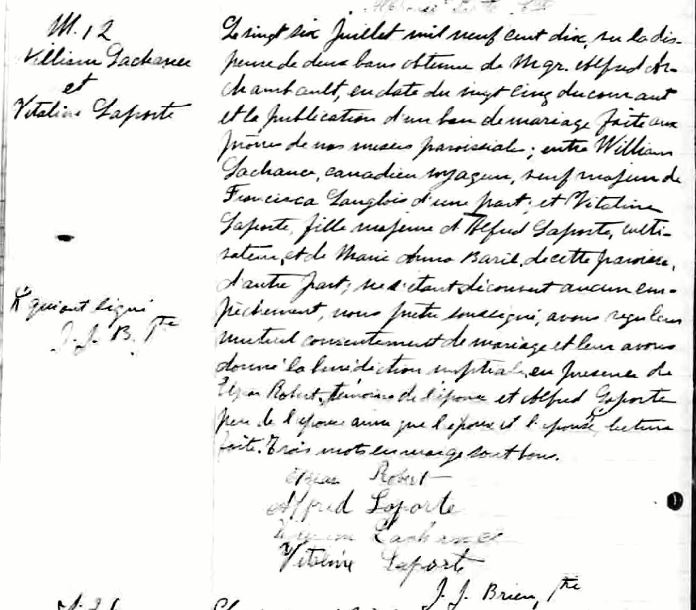 M. 12
William Lachance
et
Vitaline Laporte
Le vingt six Juillet mil neuf cent dix, vu la dis-
pense de deux bans obtenue de Mgr. Alfred Ar-
chambault, en date du vingt cinq du courant
et la publication d'un ban de mariage faite aux
prônes de nos messes paroissiales; entre William
Lachance, canadien voyageur, veuf majeur de
Francisca Langlois d'une part, et Vitaline
Laporte, fille majeure d'Alfred Laporte, culti-
vateur, et de Marie Anna Baril, de cette paroisse,
d'autre part; ne s'étant découvert aucun em-
pêchement, nous prêtre soussigné, avons reçu leur
mutuel consentement de mariage et leur avons
donné la bénédiction nuptiale, en présence de
Robert, témoins de l'époux et Alfred Laporte
père de l'épouse ainsi que l'époux et l'épouse, lecture
faite. Trois mots en marge sont bons.
qui ont signé
J. J. B. Ptre
Robert
Alfred Laporte
Lachance
Vitaline Laporte
J. J. Brien, Ptre